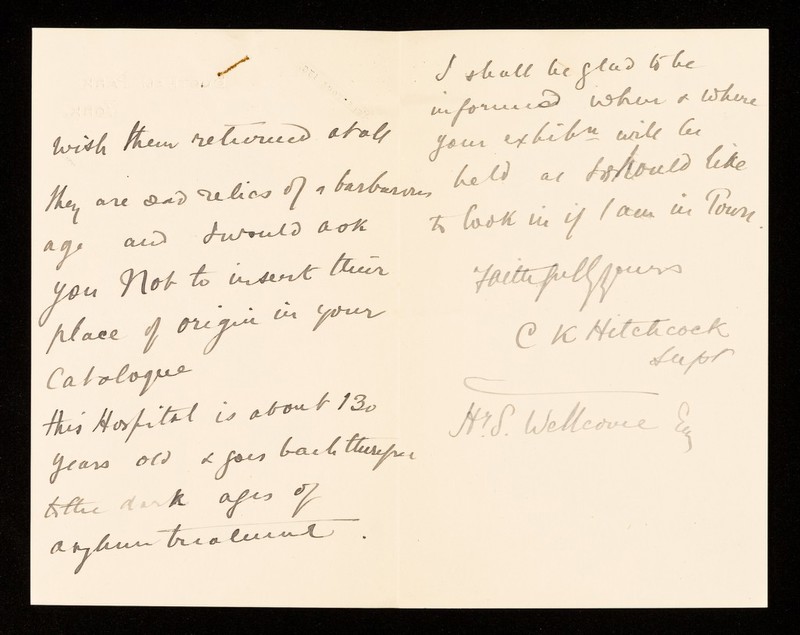 wish them returned at all
they are sad relics of a barbarous
age and I would ask
you Not to insert their
place of origin in your
Catalogue
this Hospital is about 130
years old & goes back therefore
to the dark ages of
asylum treatment.
I shall be glad to be
informed when & where
your exhibn will be
held as I should like
to look in if I am in Town.
Faithfully yours
C K Hitchcock
Supt
H. S. Wellcome Esq